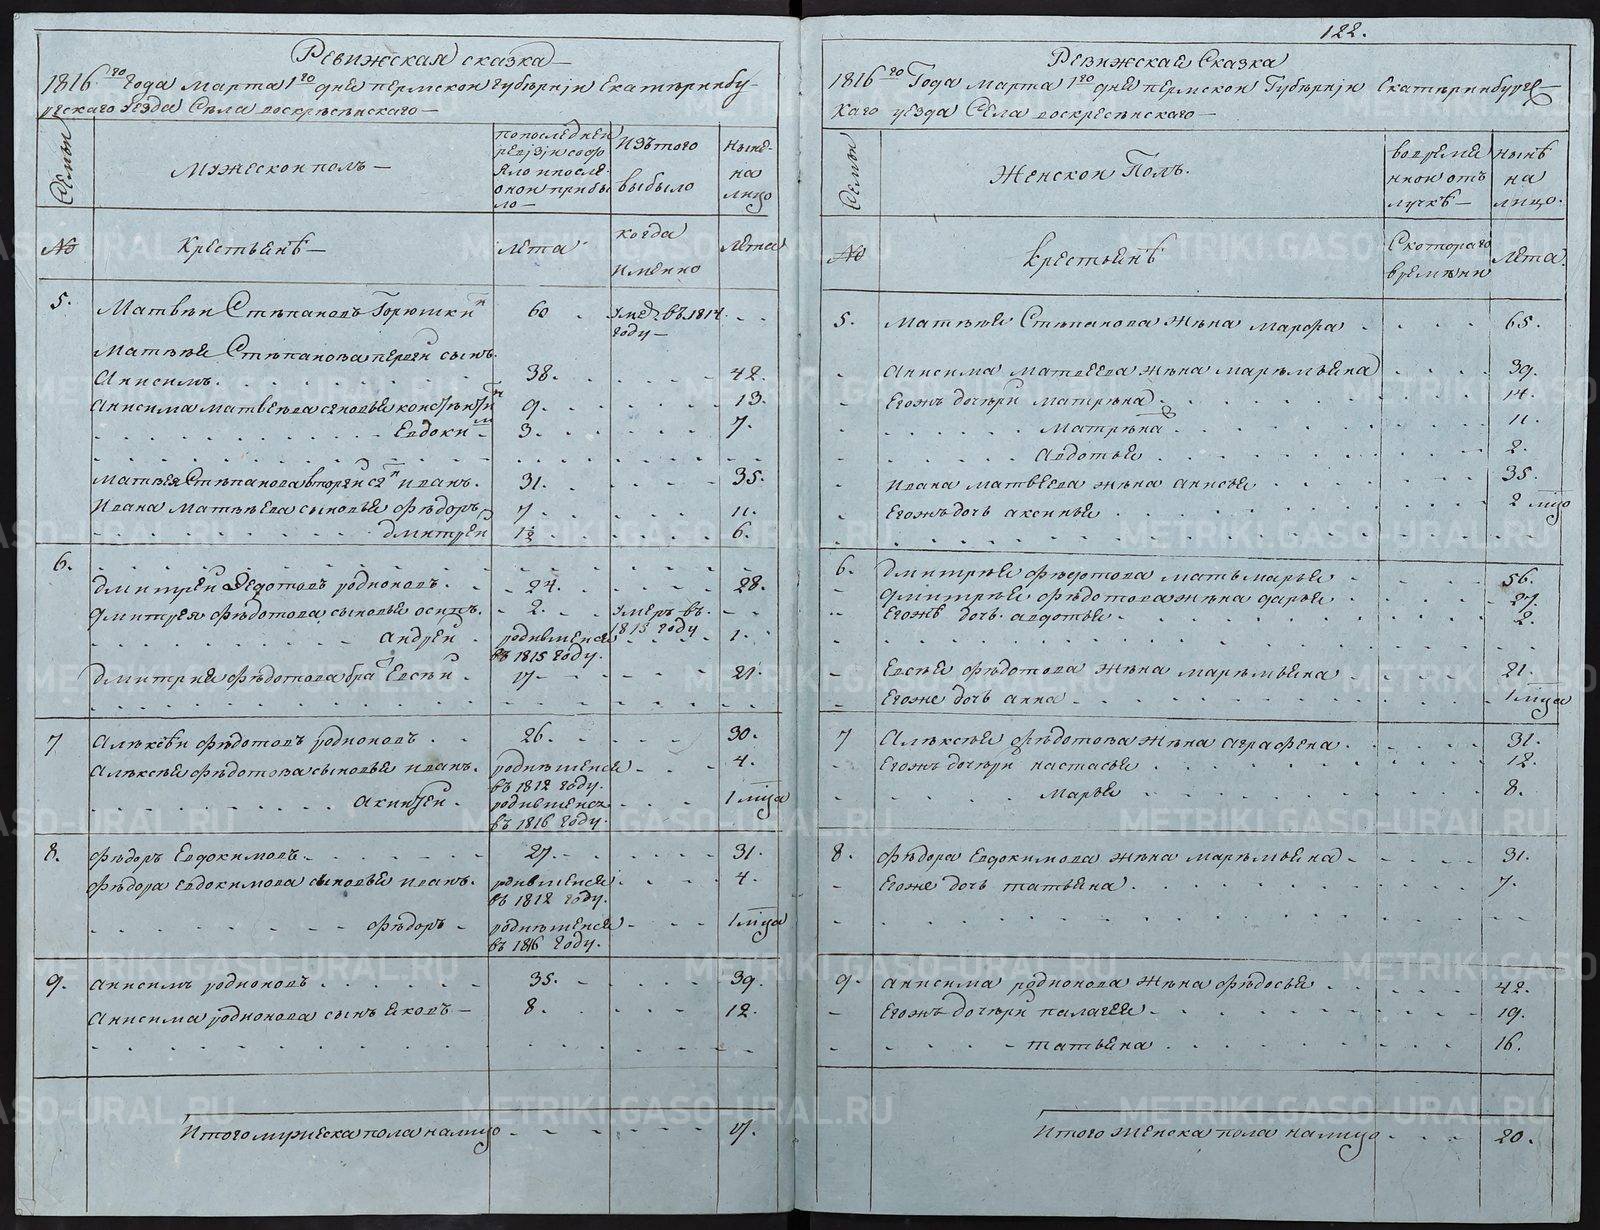 Ревижская сказка
1816го года марта 1го дня пермской губѣрнiи Екатѣринбу-
ргскаго уезда Сѣла воскрѣсѣнскаго
Семьи
Мужеской полъ
по последней
ревiзiи состо
яло и после
оной прибы
ло
Изъ того
выбыло
Ныне
на
лицо
№
Крестьянѣ
Лета
когда
имянно
Лета
5.
Матвѣй Стѣпановъ Горюшкин
60
умер въ 1814
году
Матвѣя Стѣпанова первой сынъ
Анисимъ.
38.
42.
Анисима матвѣева сыновья констянтин
9.
13.
Евдоким
3.
7.
Матвѣя Стѣпанова второй сн иванъ.
31.
35.
Ивана Матвѣева сыновья Фѣдоръ
7.
11.
дмитрей
1½
6.
6.
Дмитрей Федотовъ родионовъ.
24.
28.
Дмитрея Фѣдотова сыновья осипъ.
2.
умеръ въ
1815 году
андрей
родившейся
въ 1815 году.
1.
Дмитрия Фѣдотова бра Евсѣй
17
21.
7
Алѣксѣй Фѣдотовъ родионовъ
26.
30.
Алѣксея Фѣдотова сыновья иванъ.
родившейся
въ 1812 году.
4.
Акинфей.
родившейся
въ 1816 году.
1 мца
8.
Фѣдоръ Евдокимовъ
27.
31.
Фѣдора Евдокимова сыновья иванъ.
родившейся
въ 1812 году.
4.
Фѣдоръ
родившейся
въ 1816 году.
1 мца
9.
Анисимъ родионовъ
35.
39.
Анисима родионова сынъ яковъ
8.
12.
Итого мужеска пола налицо
17.
122.
Ревижская Сказка
1816го Года марта 1го дня пермской Губѣрнiи Екатѣринбургс-
каго уезда Села воскресѣнскаго
Семьи
Женской Полъ.
во время
нной отъ
лучкѣ
нынѣ
на
лицо.
№
крестьянѣ
С котораго
времѣни
Лета.
5.
Матвѣя Стѣпанова жѣна марфа
65.
Анисима Матвеева жѣна марѣмьяна
39.
Егожъ дочѣри матрѣна
14.
Матрѣна 2
11.
Авдотья
2.
Ивана матвеева жѣна анисья
35.
Егожъ дочь аксинья
2 мцо
6.
Дмитрѣя Фѣдотова мать марья
56.
Дмитрѣя Фѣдотова жѣна дарья
27.
Егожѣ дочь авдотья
2.
Евсѣя Фѣдотова жѣна марѣмьяна
21.
Егоже дочь анна
1 мца
7
Алѣксея Фѣдотова жѣна аграфена
31.
Егожъ дочѣри настасья
12.
Марья
8.
8.
Фѣдора Евдокимова жѣна марѣмьяна
31.
Егоже дочь татьяна.
7.
9.
Анисима родионова жѣна Фѣдосья
42.
Егожъ дочѣри палагея
19.
татьяна
16.
Итого женска пола налицо
20.
METRIKI.GASO-URAL.RU